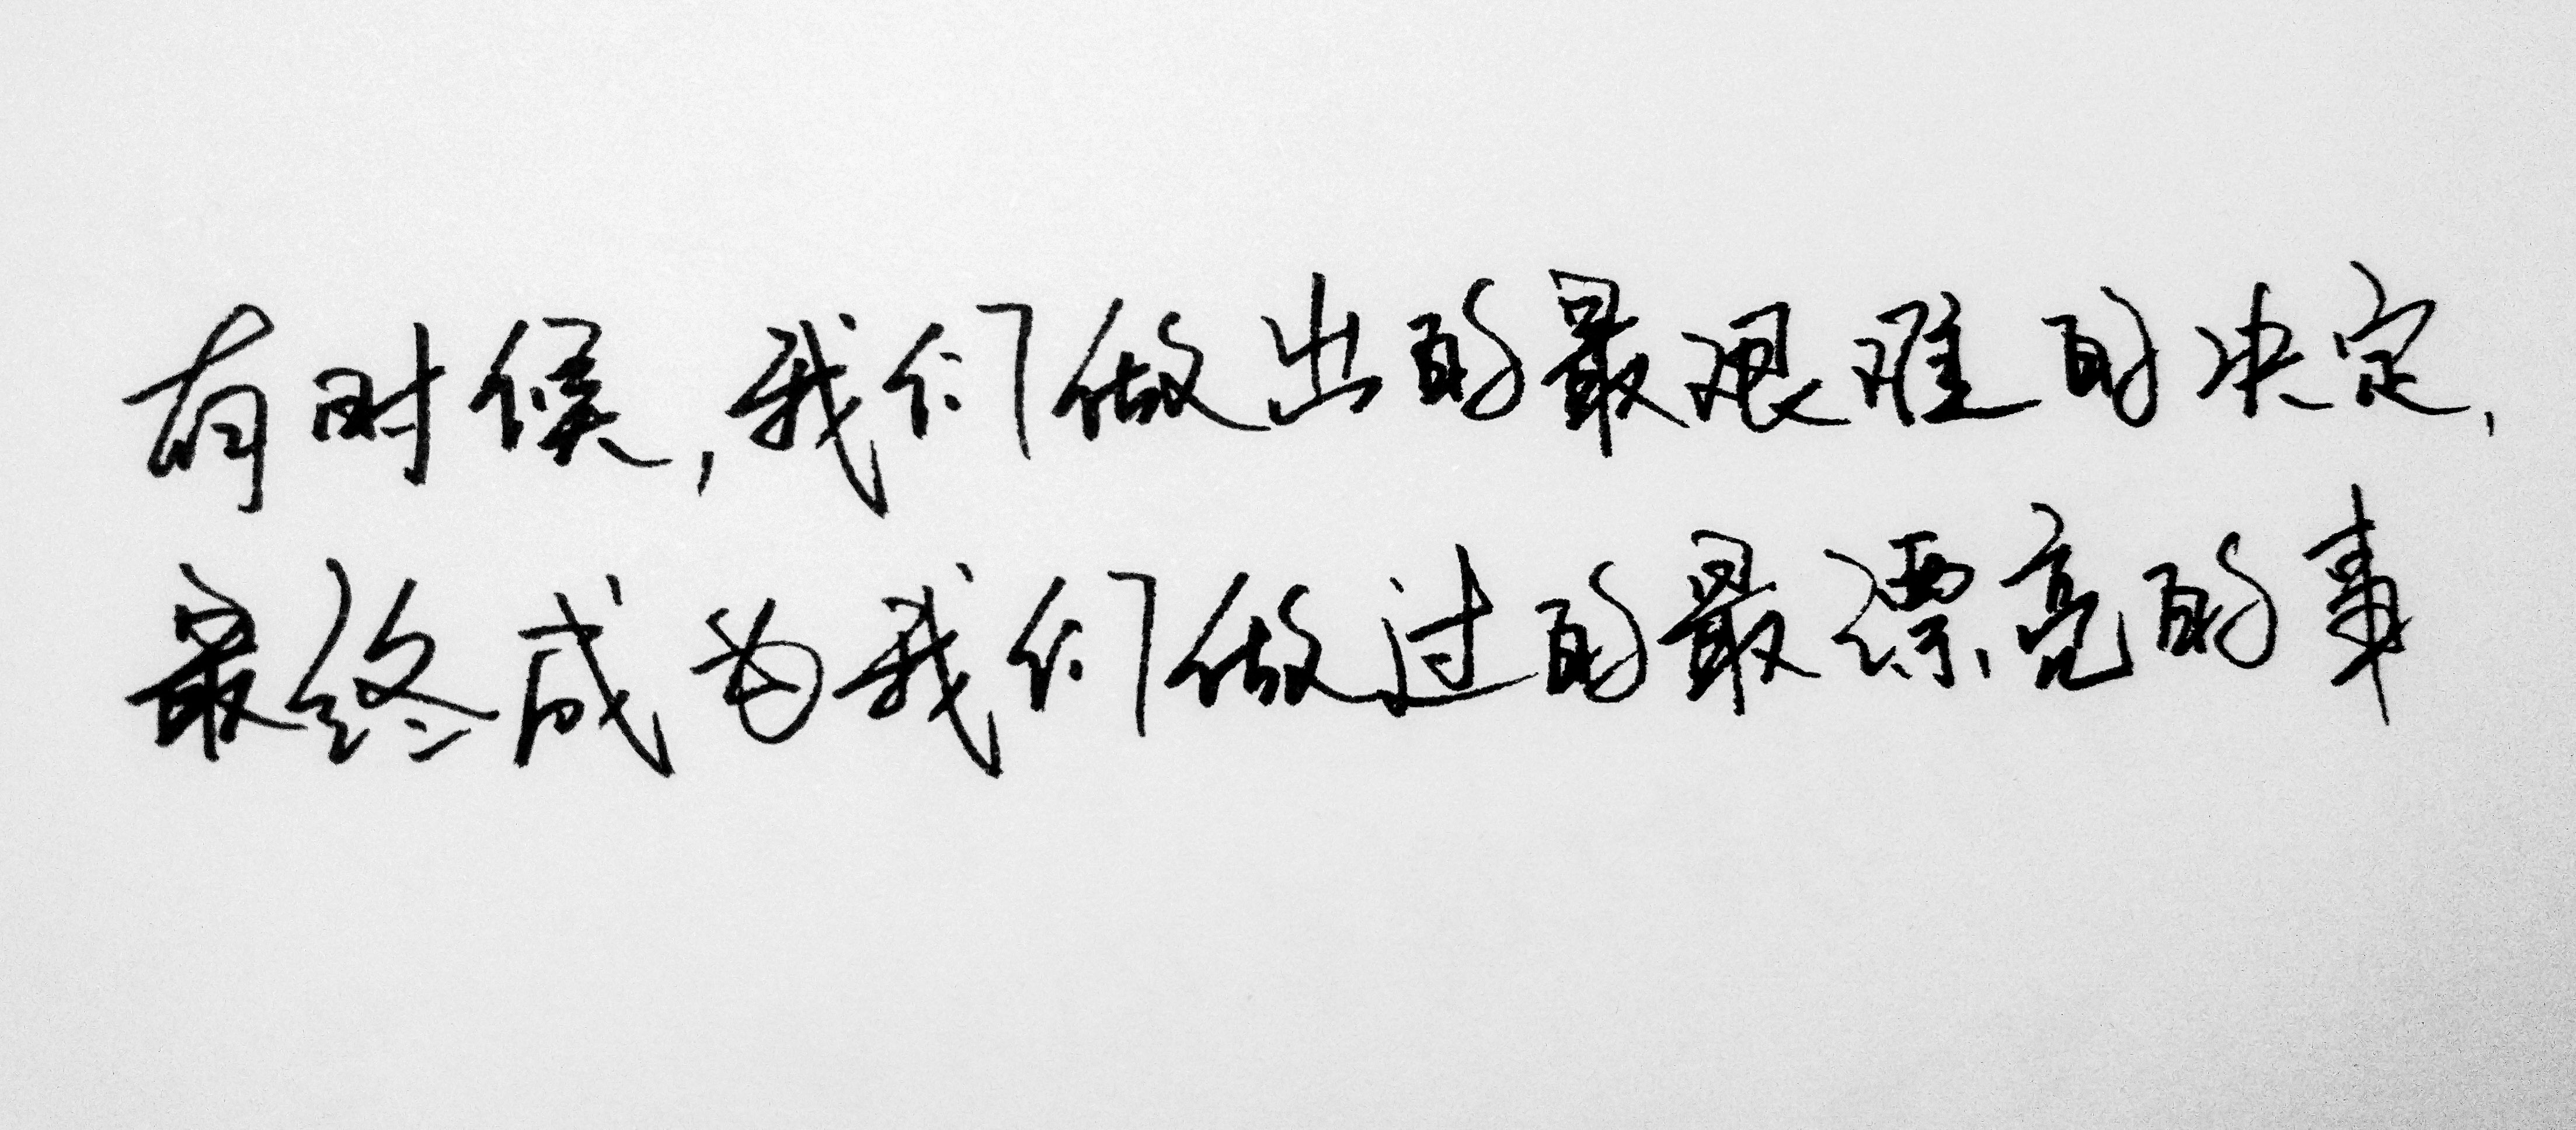 有时候,我们做出的最艰难的决定,
最终成为我们做过的最漂亮的事